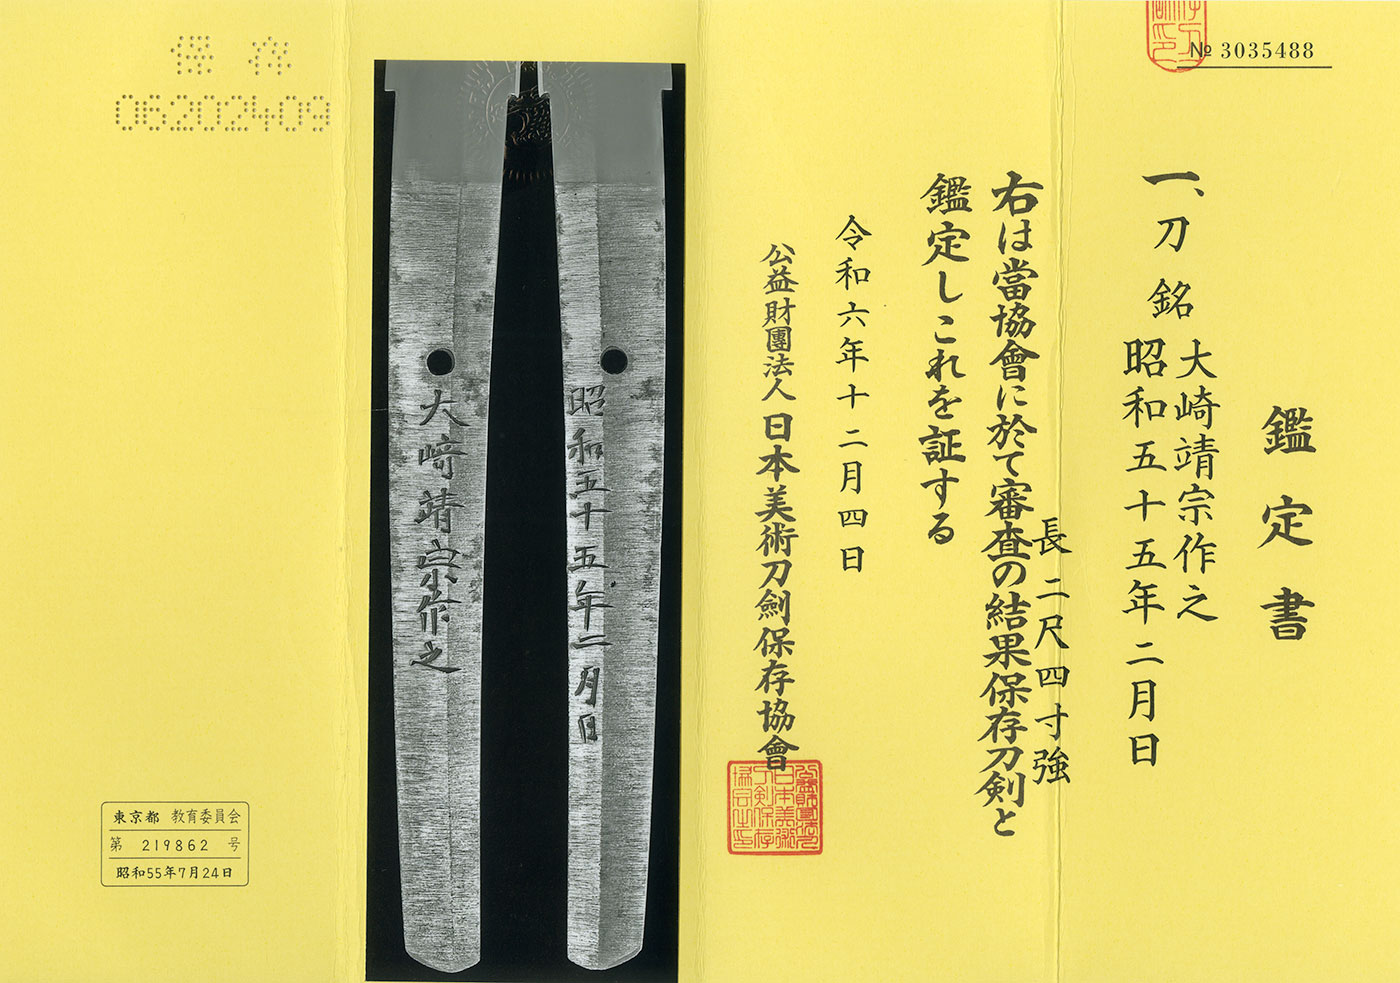 № 3035488
鑑定書
一、刀 銘 大崎靖宗作之
昭和五十五年二月日
長二尺四寸強
右は當協會に於て審査の結果保存刀剣と
鑑定しこれを証する
令和六年十二月四日
公益財團法人日本美術刀劍保存協會
昭和五十五年二月日
大﨑靖宗作之
保存
06202409
東京都 教育委員会
第 219862 号
昭和55年7月24日